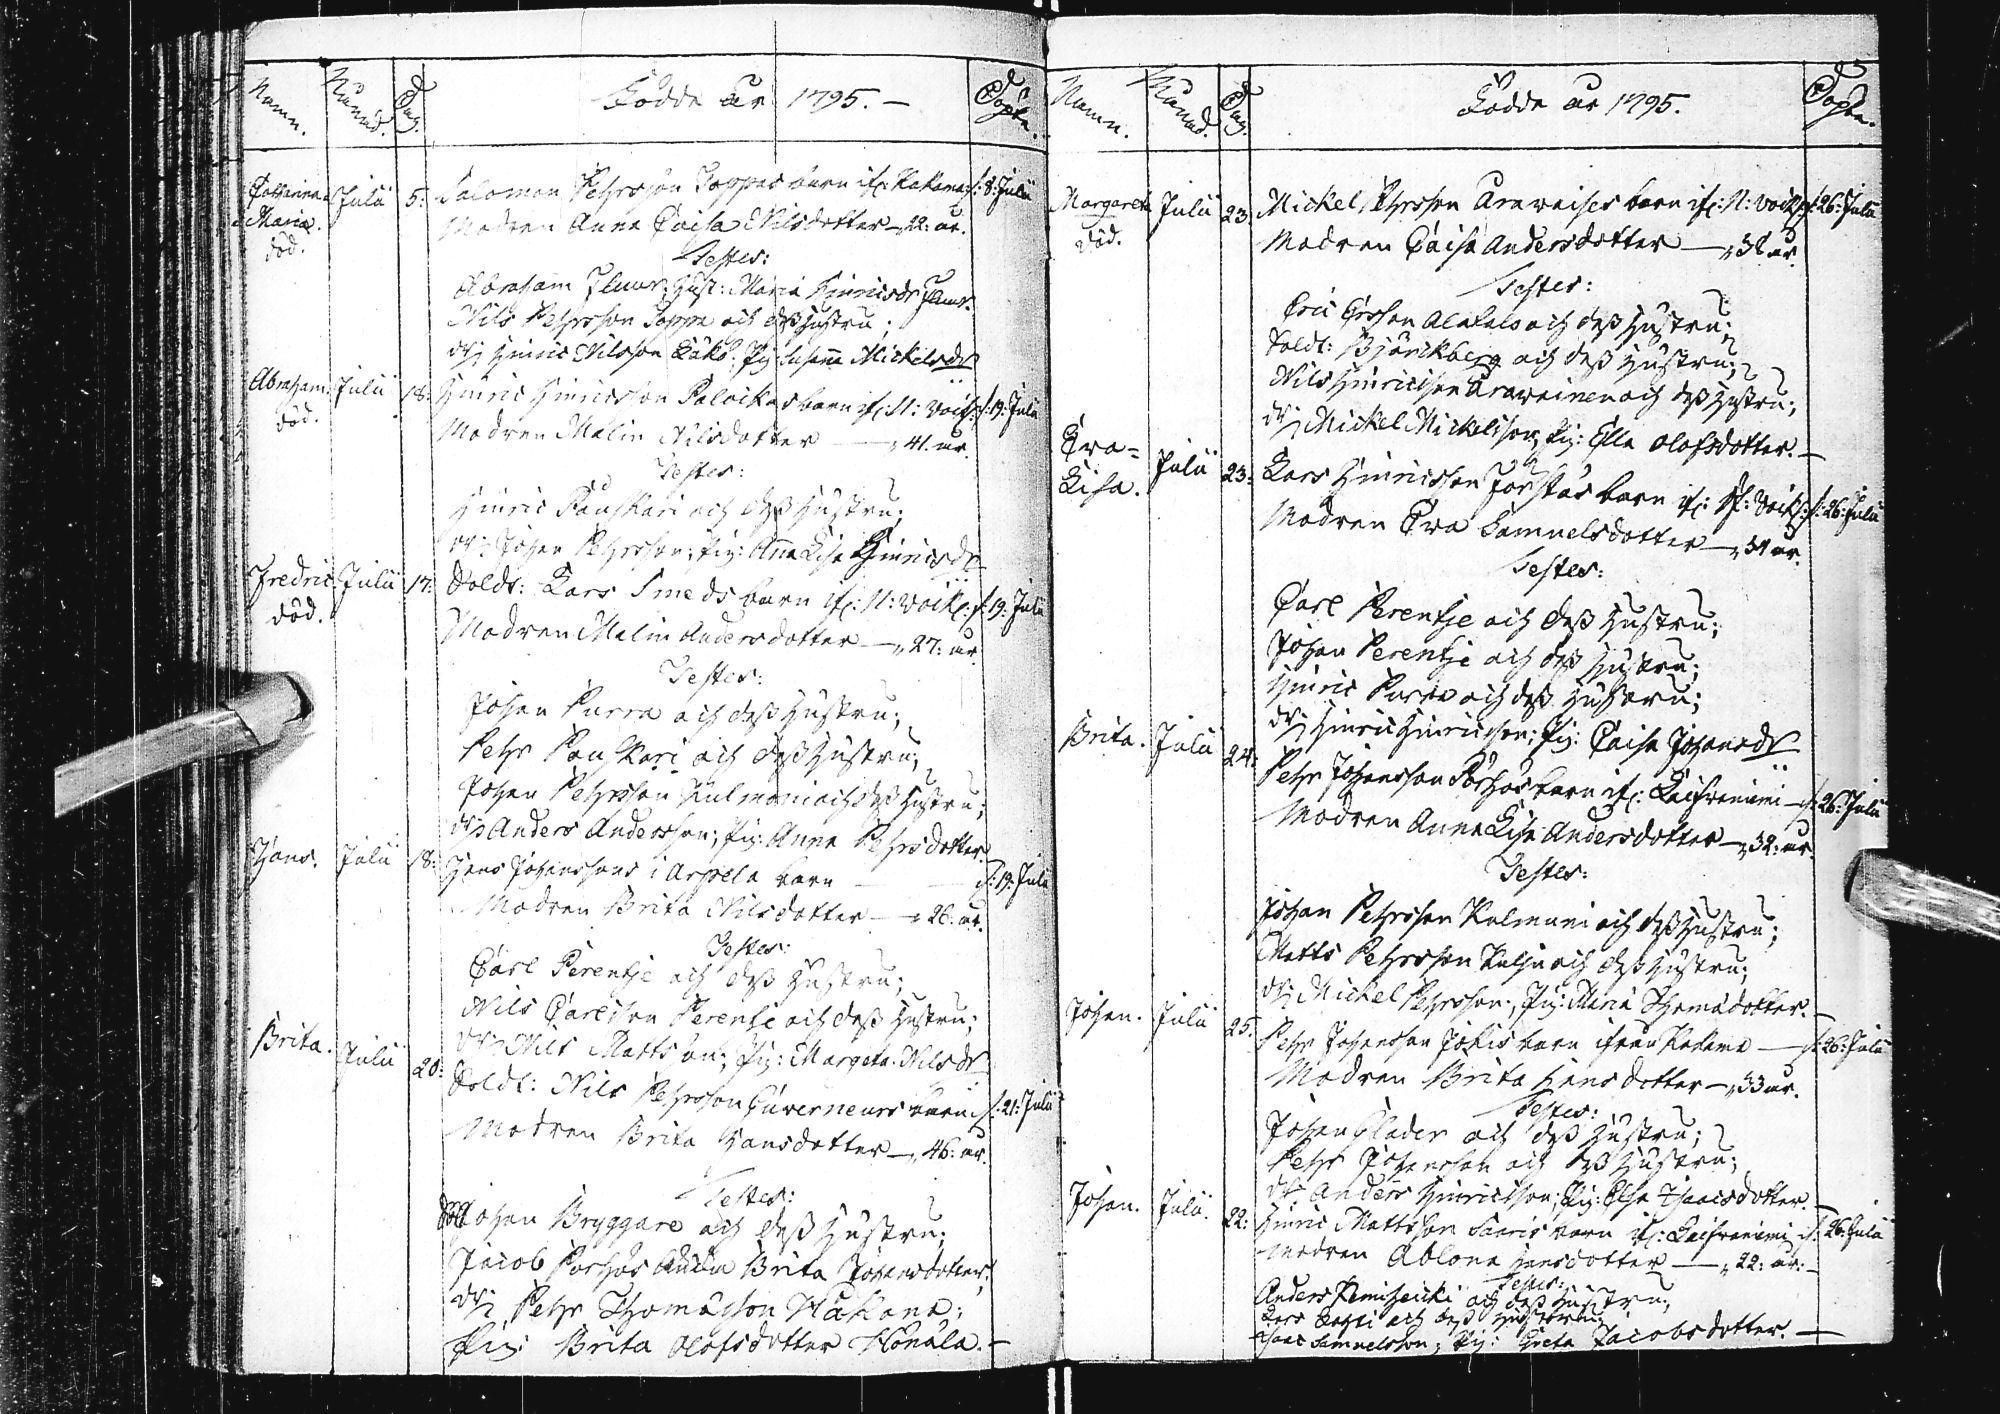 Namn. Månad. Dag. Födde År 1795. — Döpte.
Catharina Julii 5: Salomon Pehrsson Poppas barn if: Kakama: d: 8: Julii
Maria. Modren Anna Caisa Nilsdotter — 22: år.
död. Testes:
Abraham Hust: Maria Hinricsdr
Nils Pehrsson Poppa och dess hustru;
Dr: Hinric Nilsson Pig: Susanna Mickelsdr
Abraham. Julii 18: Hinric Hinricsson Paloikas barn if: N: Voik: d: 19: Julii
död. Modren Malin Nilsdotter — 41. år.
Testes:
Hinric Pauskari och dess hustru;
Dr: Johan Pehrsson; Pig: Anna Lisa Hinricsdr
Fredric Julii 17: Soldt: Lars Smeds barn if: N: Voik: d: 19: Julii
död. Modren Malin Andersdotter — 27: år.
Testes:
Johan Purra och dess hustru;
Pehr Pauskari och dess hustru;
Johan Pehrsson Kulmoni och dess hustru;
Dr: Anders Andersson; Pig: Anna Pehrsdotter.
Hans. Julii 18: Hans Johanssons i Arpela barn — d: 19: Julii
Modren Brita Nilsdotter — 26: år.
Testes:
Carl Perentje och dess hustru;
Nils Carlsson Perentje och dess hustru;
Dr: Nils Mattsson; Pig: Margeta Nilsdr
Brita. Julii 20: Soldt: Nils Pehrsson Guverneurs barn d: 21: Julii
Modren Brita Hansdotter — 46: år.
Testes:
Johan Bryggare och dess hustru;
Jacob Porhos Brita Johansdotter;
Dr: Pehr Thomasson Kakama;
Pig: Brita Olofsdotter —
Namn. Månad. Dag. Födde år 1795. Döpte.
Margareta Julii 23: Mickel Pehrsson Arawaises barn if: N: Voik: d: 26: Julii
död. Modren Caisa Andersdotter — 38 år.
Testes:
Eric Ersson Alatalo och dess hustru;
Soldt: Björckberg och dess hustru;
Nils Hinricsson Arawainen och dess hustru;
Dr: Mickel Mickelsson; Pig: Ella Olofsdotter. —
Eva=
Lisa. Julii 23: Lars Hinricsson barn if: Voik: d: 26: Julii
Modren Eva Samuelsdotter — 31 år.
Testes:
Carl Perentje och dess hustru;
Johan Perentje och dess hustru;
Hinric Purra och dess hustru;
Dr: Hinric Hinricsson; Pig: Caisa Johansdr
Brita. Julii 24: Pehr Johansson Porhos barn if: Laivaniemi — d: 26: Julii
Modren Anna Lisa Andersdotter — 32: år.
Testes:
Johan Pehrsson Kulmuni och dess hustru;
Matts Pehrsson och dess hustru;
Dr: Mickel Pehrsson; Pig: Maria Thomasdotter. —
Johan. Julii 25. Pehr Johansson Jokis barn ifrån Kakama — d: 26: Julii
Modren Brita Hansdotter — 33 år.
Testes:
Johan Glader och dess hustru;
Pehr Johansson och dess hustru;
Dr: Anders Hinricsson; Pig: Elsa Isaacsdotter. —
Johan. Julii. 22: Hinric Mattsson Saaris barn if: Laivaniemi d: 26: Julii
Modren Ablona Hansdotter — 22: år. —
Testes:
Anders och dess hustru;
Lars och dess hustru;
Isaac Samuelsson; Pig: Greta Jacobsdotter. —